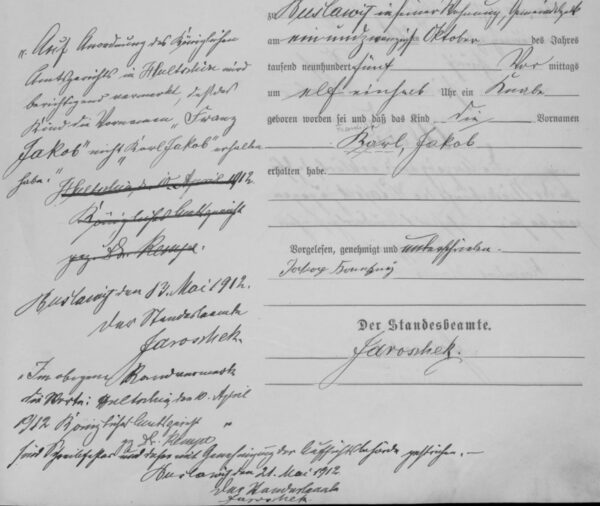 „Auf Anordnung des Königlichen
Amtsgerichts in Hultschin wird
berichtigend vermerkt, daß das
Kind die Vornamen „Franz
Jakob" nicht „Karl Jakob" erhalten
habe."
Hultschin den 10. April 1912.
Königliches Amtsgericht
gez. Dr.
Buslawitz den 13. Mai 1912.
Der Standesbeamte
Jaroschek.
„Im obigen Randvermerk
die Worte: Hultschin den 10. April
1912 Königliches Amtsgericht
gez. Dr.
sind Schreibfehler und daher mit Genehmigung der Aufsichtsbehörde gestrichen. —
Buslawitz den 21. Mai 1912
Der Standesbeamte
Jaroschek.
zu Buslawitz in seiner Wohnung
am ein und zwanzigsten Oktober des Jahres
tausend neunhundert fünf Vor mittags
um elf einhalb Uhr ein Knabe
geboren worden sei und daß das Kind die Vornamen
Karl, Jakob
erhalten habe.
Vorgelesen, genehmigt und unterschrieben.
Der Standesbeamte.
Jaroschek.